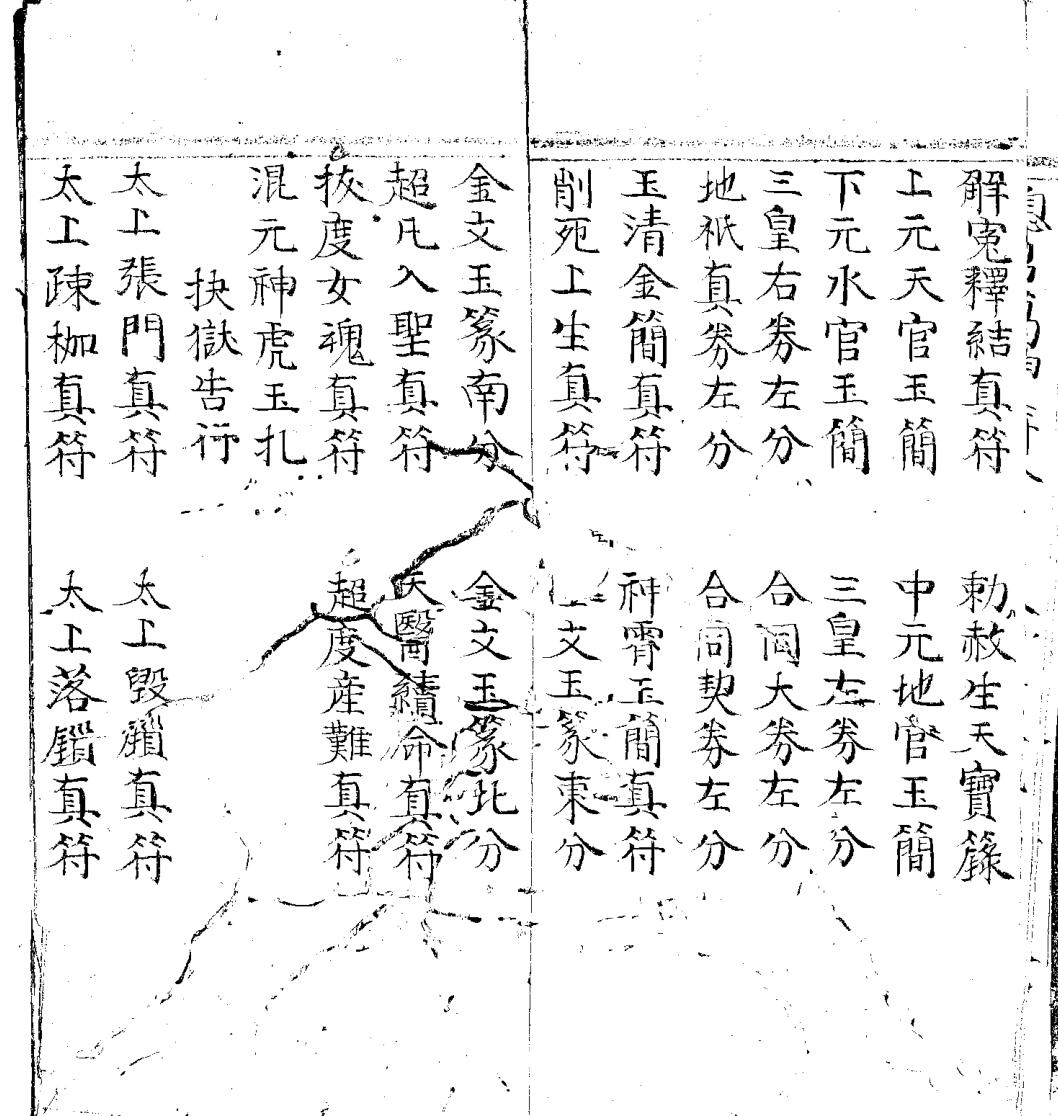 解冤釋結真符 勅赦生天寶籙
上元天官玉簡 中元地官玉簡
下元水官玉簡 三皇左券左分
三皇右券左分 合同大券左分
地祇真券左分 合同契券左分
玉清金簡真符 神霄玉簡真符
削死上生真符 文玉篆東分
金文玉篆南分 金文玉篆北分
超凡入聖真符 天醫續命真符
拔度女魂真符 超度産難真符
混元神虎玉札
抉獄告行
太上張門真符 太上毀鎻真符
太上踈枷真符 太上落鎻真符